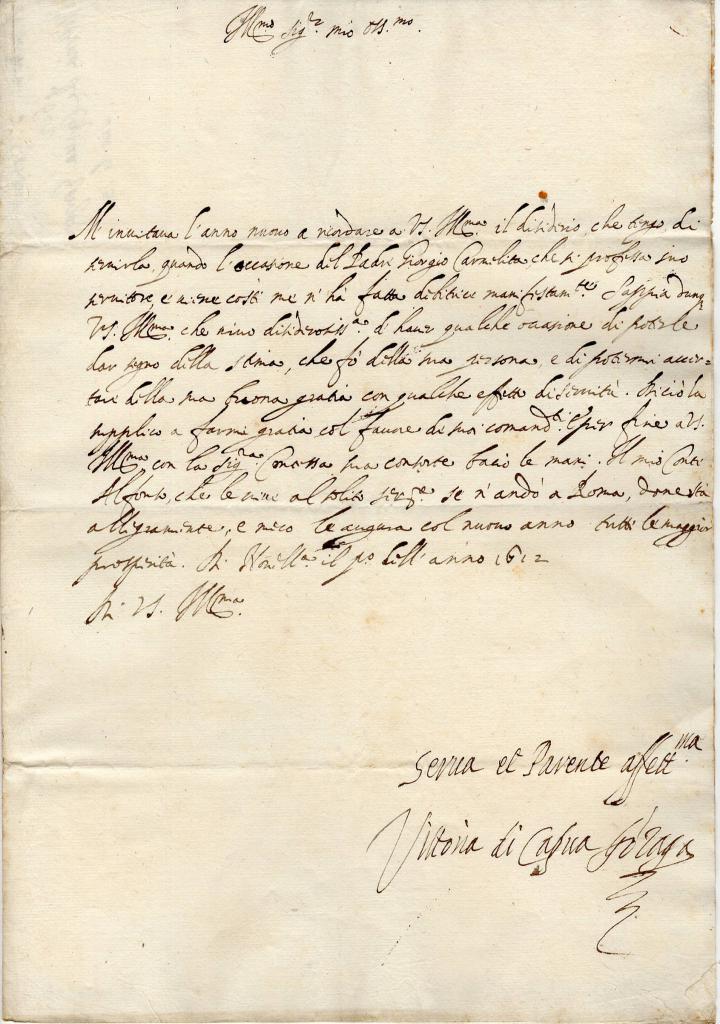 Ill.mo Sig.r mio oss.mo
M'invitava l'anno nuovo a ricordare a V.S. Ill.ma il disiderio, che tengo di
servirla, quando l'occasione del Padre Giorgio Carmelita che si professa suo
servitore, e viene costì me n'ha fatta debitrice manifestam.te. Sappia dunq
V.S. Ill.ma, che vivo disiderosiss.a, d'haver qualche occasione di poterle
dar segno della stima, che fò della sua persona, e di potermi accer-
tare della sua buona gratia con qualche effetto di servitù. Perciò la
supplico a farmi gratia col favore de suoi comand.ti. E per fine a V.S.
Ill.ma con la Sig.ra Contessa sua consorte bacio le mani. Il mio Conte
Alfonso, che le vive al solito ser.re se n'andò a Roma, dove stà
allegramente, e meco le augura col nuovo anno tutte le maggior
prosperità. Di Novell.ra il p.o dell'anno 1612
Di V.S. Ill.ma
Serva et Parente affett.ma
Vittoria di Capua Gõzaga